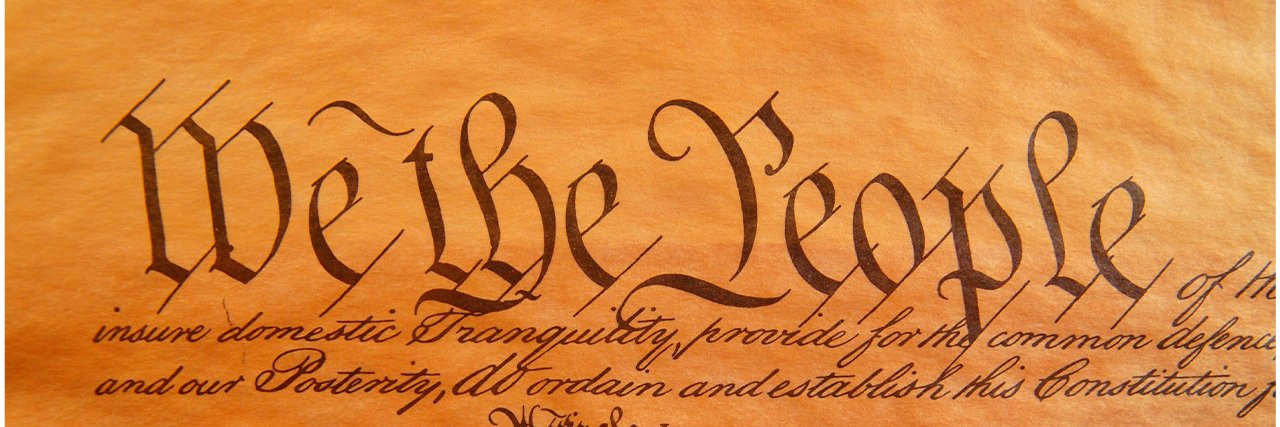 We the People of the
insure domestic Tranquility, provide for the common defence,
and our Posterity, do ordain and establish this Constitution